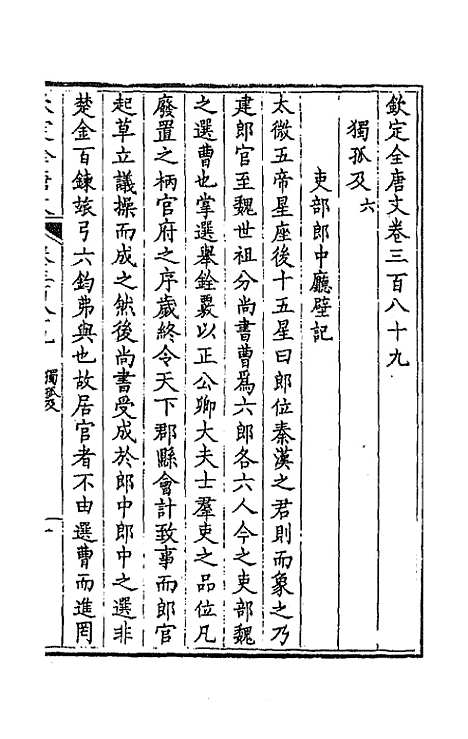 欽定全唐文卷三百八十九
獨孤及 六
吏部郎中廳壁記
太微五帝星座後十五星曰郎位秦漢之君則而象之乃
建郎官至魏世祖分尚書曹爲六郎各六人今之吏部魏
之選曹也掌選舉銓覈以正公卿大夫士羣吏之品位凡
廢置之柄官府之序歲終令天下郡縣會計致事而郎官
起草立議操而成之然後尚書受成於郎中郎中之選非
楚金百鍊旅弓六鈞弗與也故居官者不由選曹而進罔
獨孤及
一